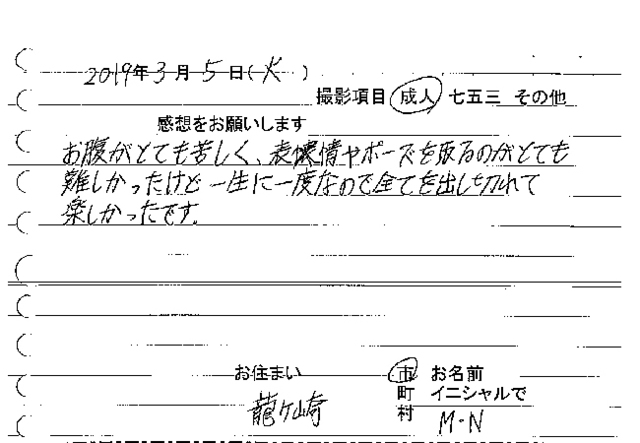 2019年3月5日(火)
撮影項目 成人 七五三 その他
感想をお願いします
お腹がとても苦しく、表情やポーズを取るのがとても
難しかったけど一生に一度なので全てを出し切れて
楽しかったです。
お住まい 市 お名前
町 イニシャルで
龍ケ崎 村 M・N